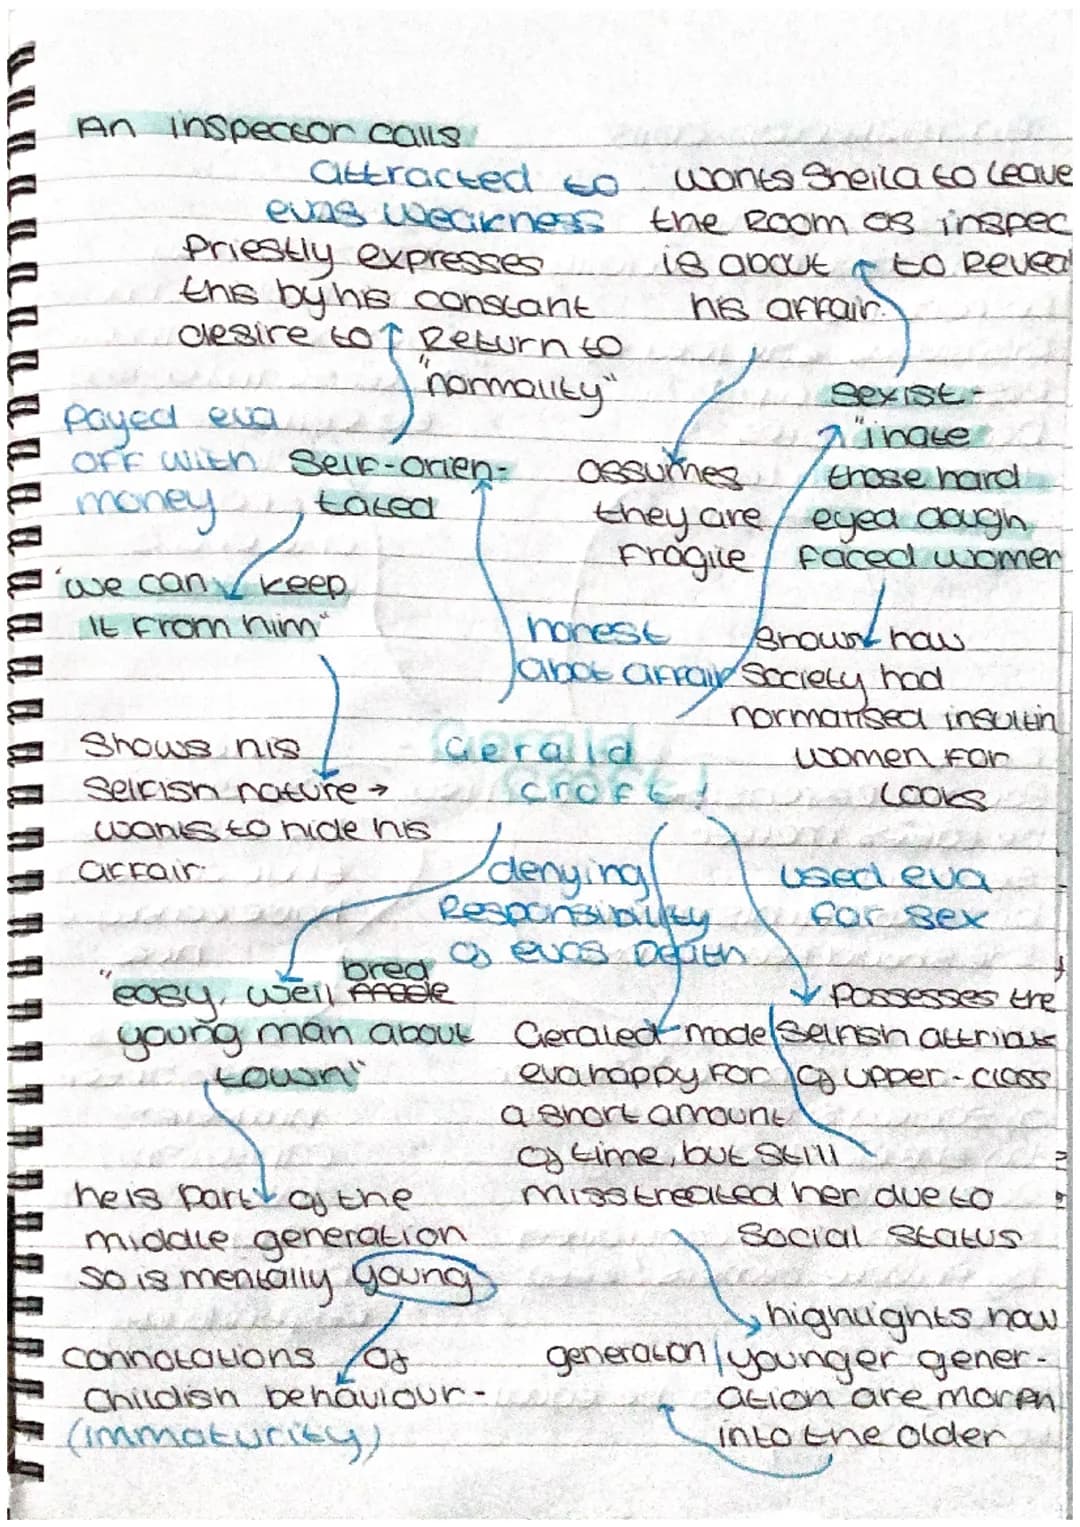 An inspector calls
attracted to
evas weakness
Priestly expresses
this by his constant
desire to Return to
"normality"
wants Sheila to leave
the Room as inspec
is about to Reveal
his affair.
Payed eva
off with
money
Self-orien-
tated
assumes
they are
Fragile
Sexist -
"i hate
those hard
eyed dough
faced women
"we can keep
it from him"
honest
abot affair
Shows how
Society had
normalised insultin
women for
Looks
Shows his
Selfish nature →
wants to hide his
affair.
Gerald
Croft!
denying
Responsibility
of evas Death
used eva
for sex
"easy, well bred made
young man about
town"
Possesses the
Selfish attribute
of upper-class
Geraled made
eva happy for
a short amount
of time, but still
misstreated her due to
Social Status
he is part of the
middle generation
so is mentally young
connotations of
Childish behaviour -
(immaturity)
highlights how
generation younger gener-
ation are morph
into the older